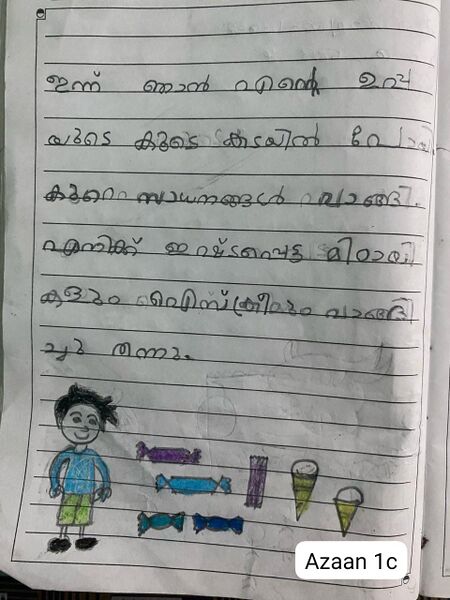 ഇന്ന് ഞാൻ എൻ്റെ ഉപ്പ
യുടെ കൂടെ കടയിൽ പോയി
കുറെ സാധനങ്ങൾ വാങ്ങി.
എനിക്ക് ഇഷ്ടപ്പെട്ട മിഠായി
കളും ഐസ്ക്രീമും വാങ്ങി
ച്ചു തന്നു.
Azaan 1c